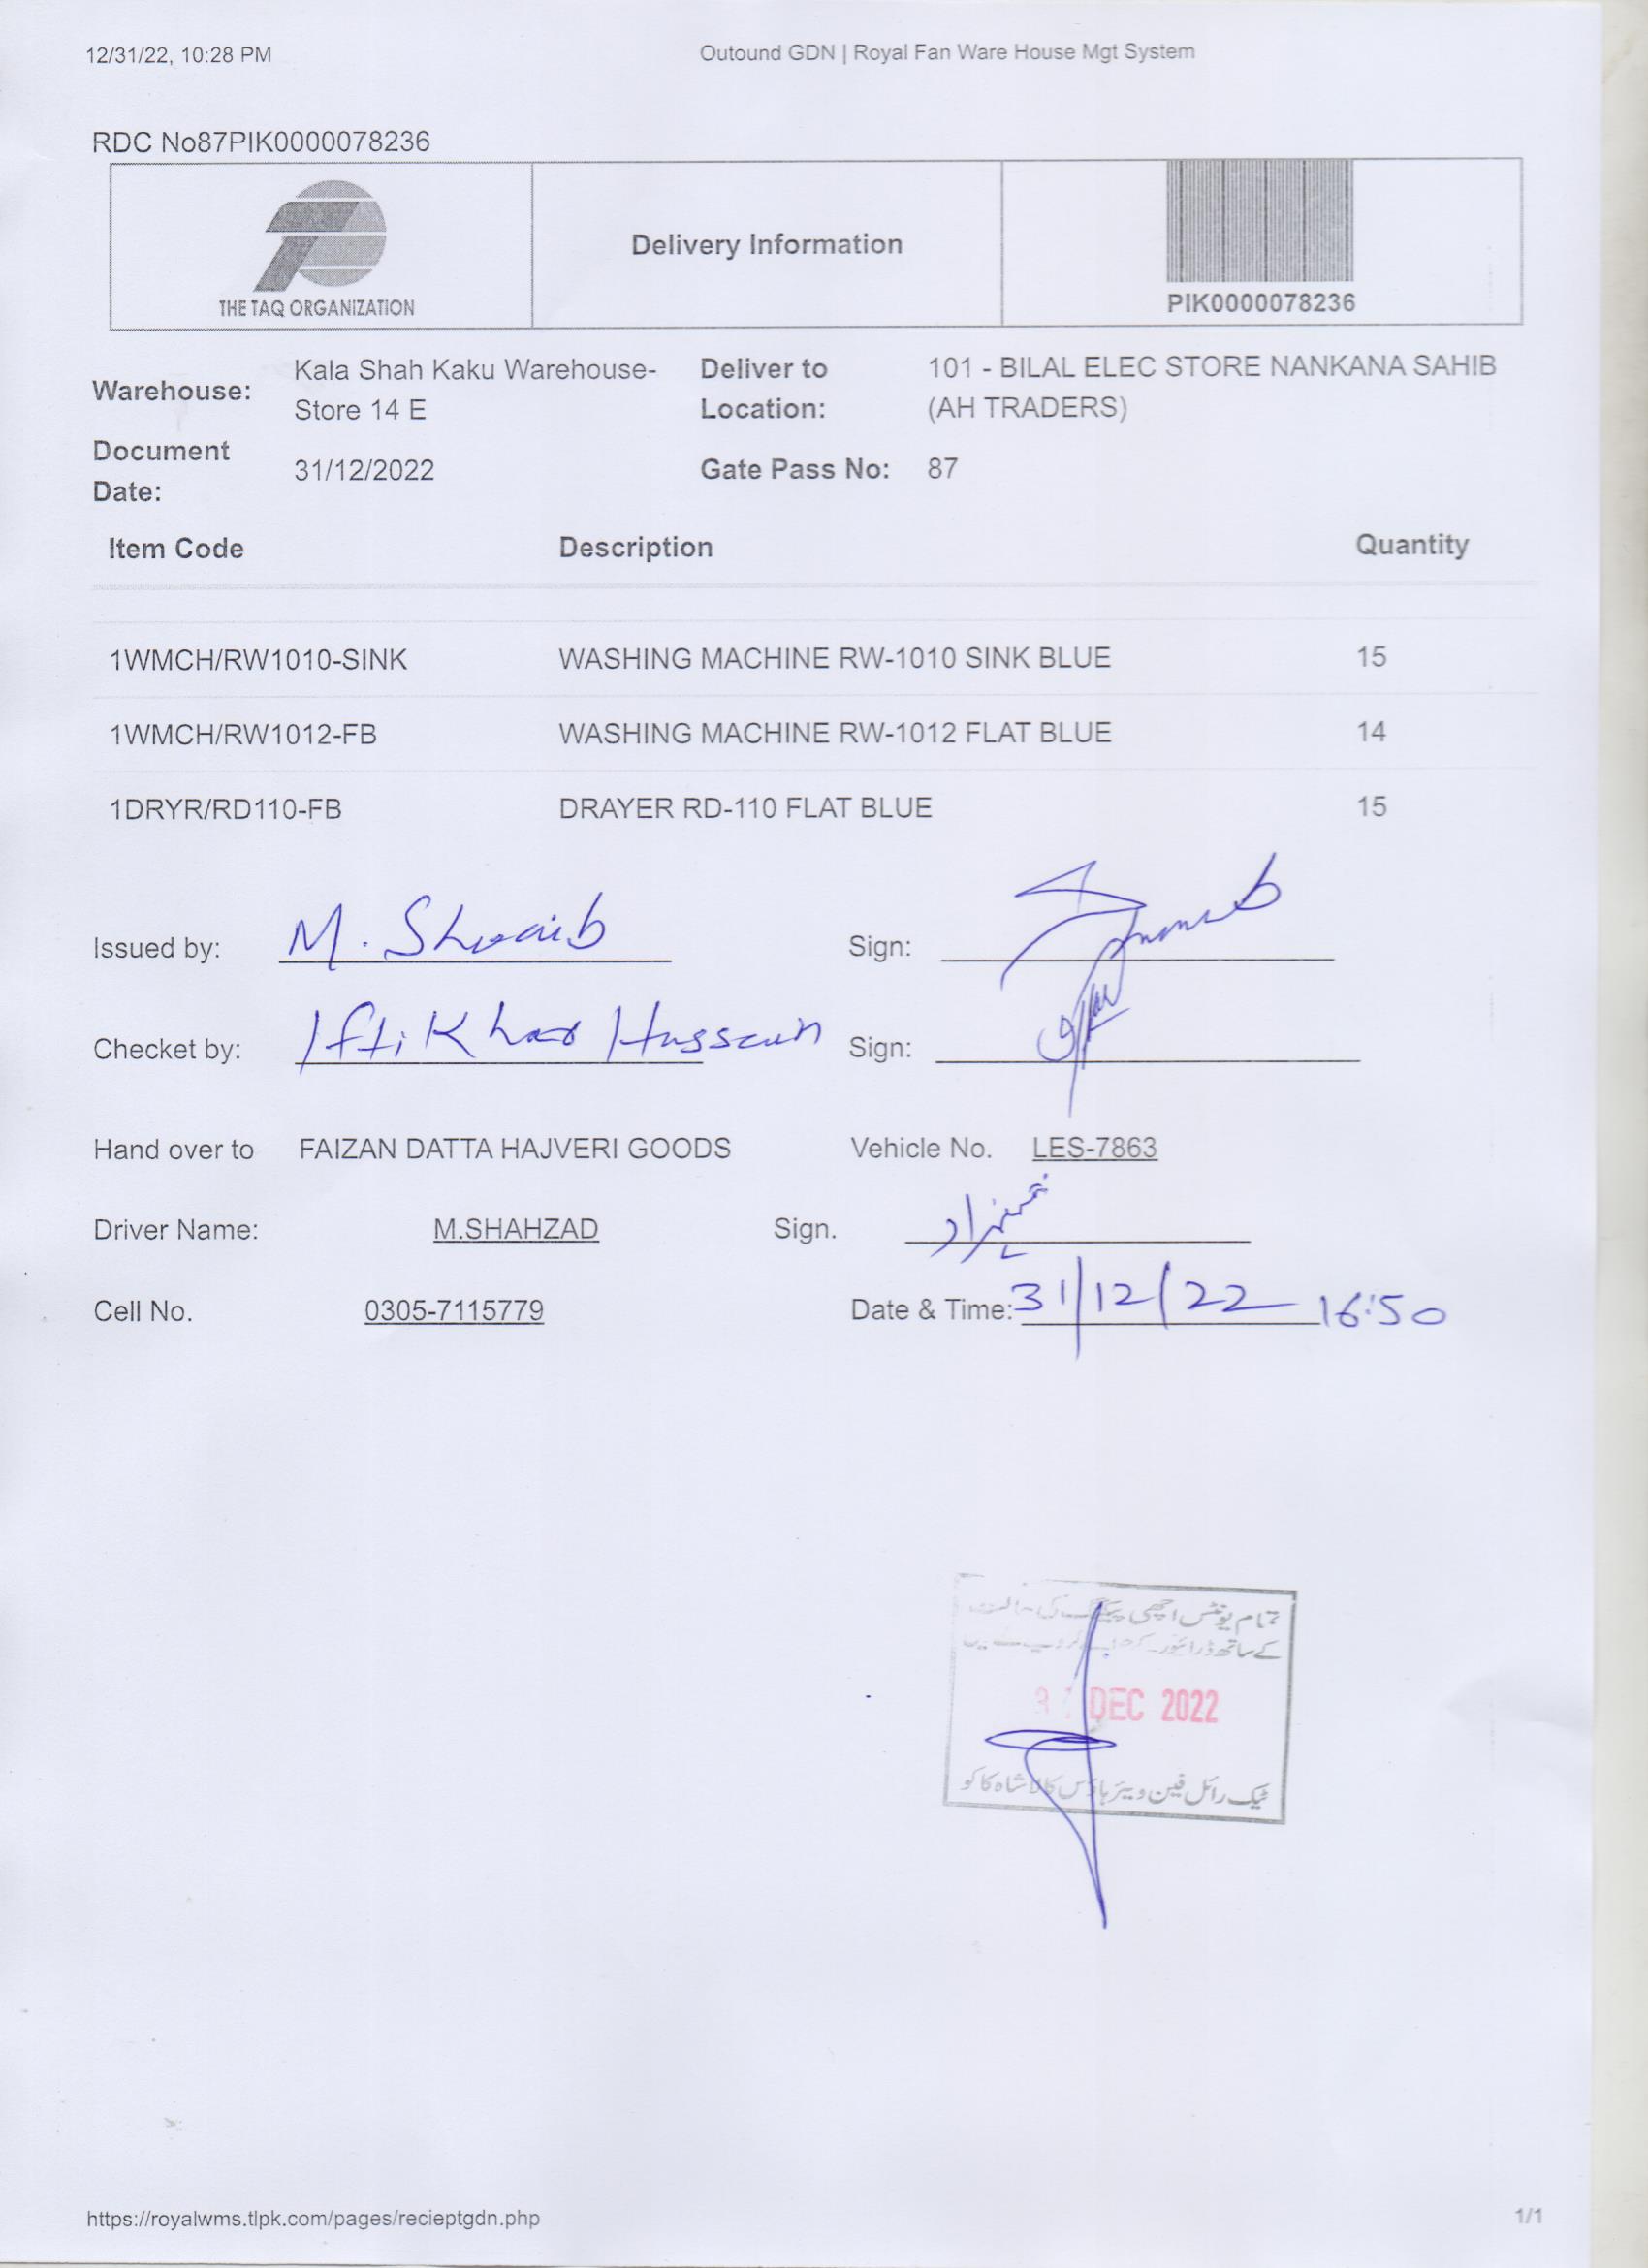 12/31/22, 10:28 PM
Outound GDN | Royal Fan Ware House Mgt System
RDC No87PIK0000078236
THE TAQ ORGANIZATION
Delivery Information
PIK0000078236
Warehouse: Kala Shah Kaku Warehouse-Store 14 E
Deliver to Location: 101 - BILAL ELEC STORE NANKANA SAHIB (AH TRADERS)
Document Date: 31/12/2022
Gate Pass No: 87
Item Code Description Quantity
1WMCH/RW1010-SINK WASHING MACHINE RW-1010 SINK BLUE 15
1WMCH/RW1012-FB WASHING MACHINE RW-1012 FLAT BLUE 14
1DRYR/RD110-FB DRAYER RD-110 FLAT BLUE 15
Issued by: M. Shoaib Sign:
Checket by: Iftikhar Hussain Sign:
Hand over to FAIZAN DATTA HAJVERI GOODS Vehicle No. LES-7863
Driver Name: M.SHAHZAD Sign. شہزاد
Cell No. 0305-7115779 Date & Time: 31/12/22 16:50
تمام یونٹس اچھی پیکنگ کی حالت
کے ساتھ ڈرائیور کے
DEC 2022
ٹیک رائل فین ویئر ہاؤس کالا شاہ کاکو
https://royalwms.tlpk.com/pages/recieptgdn.php
1/1